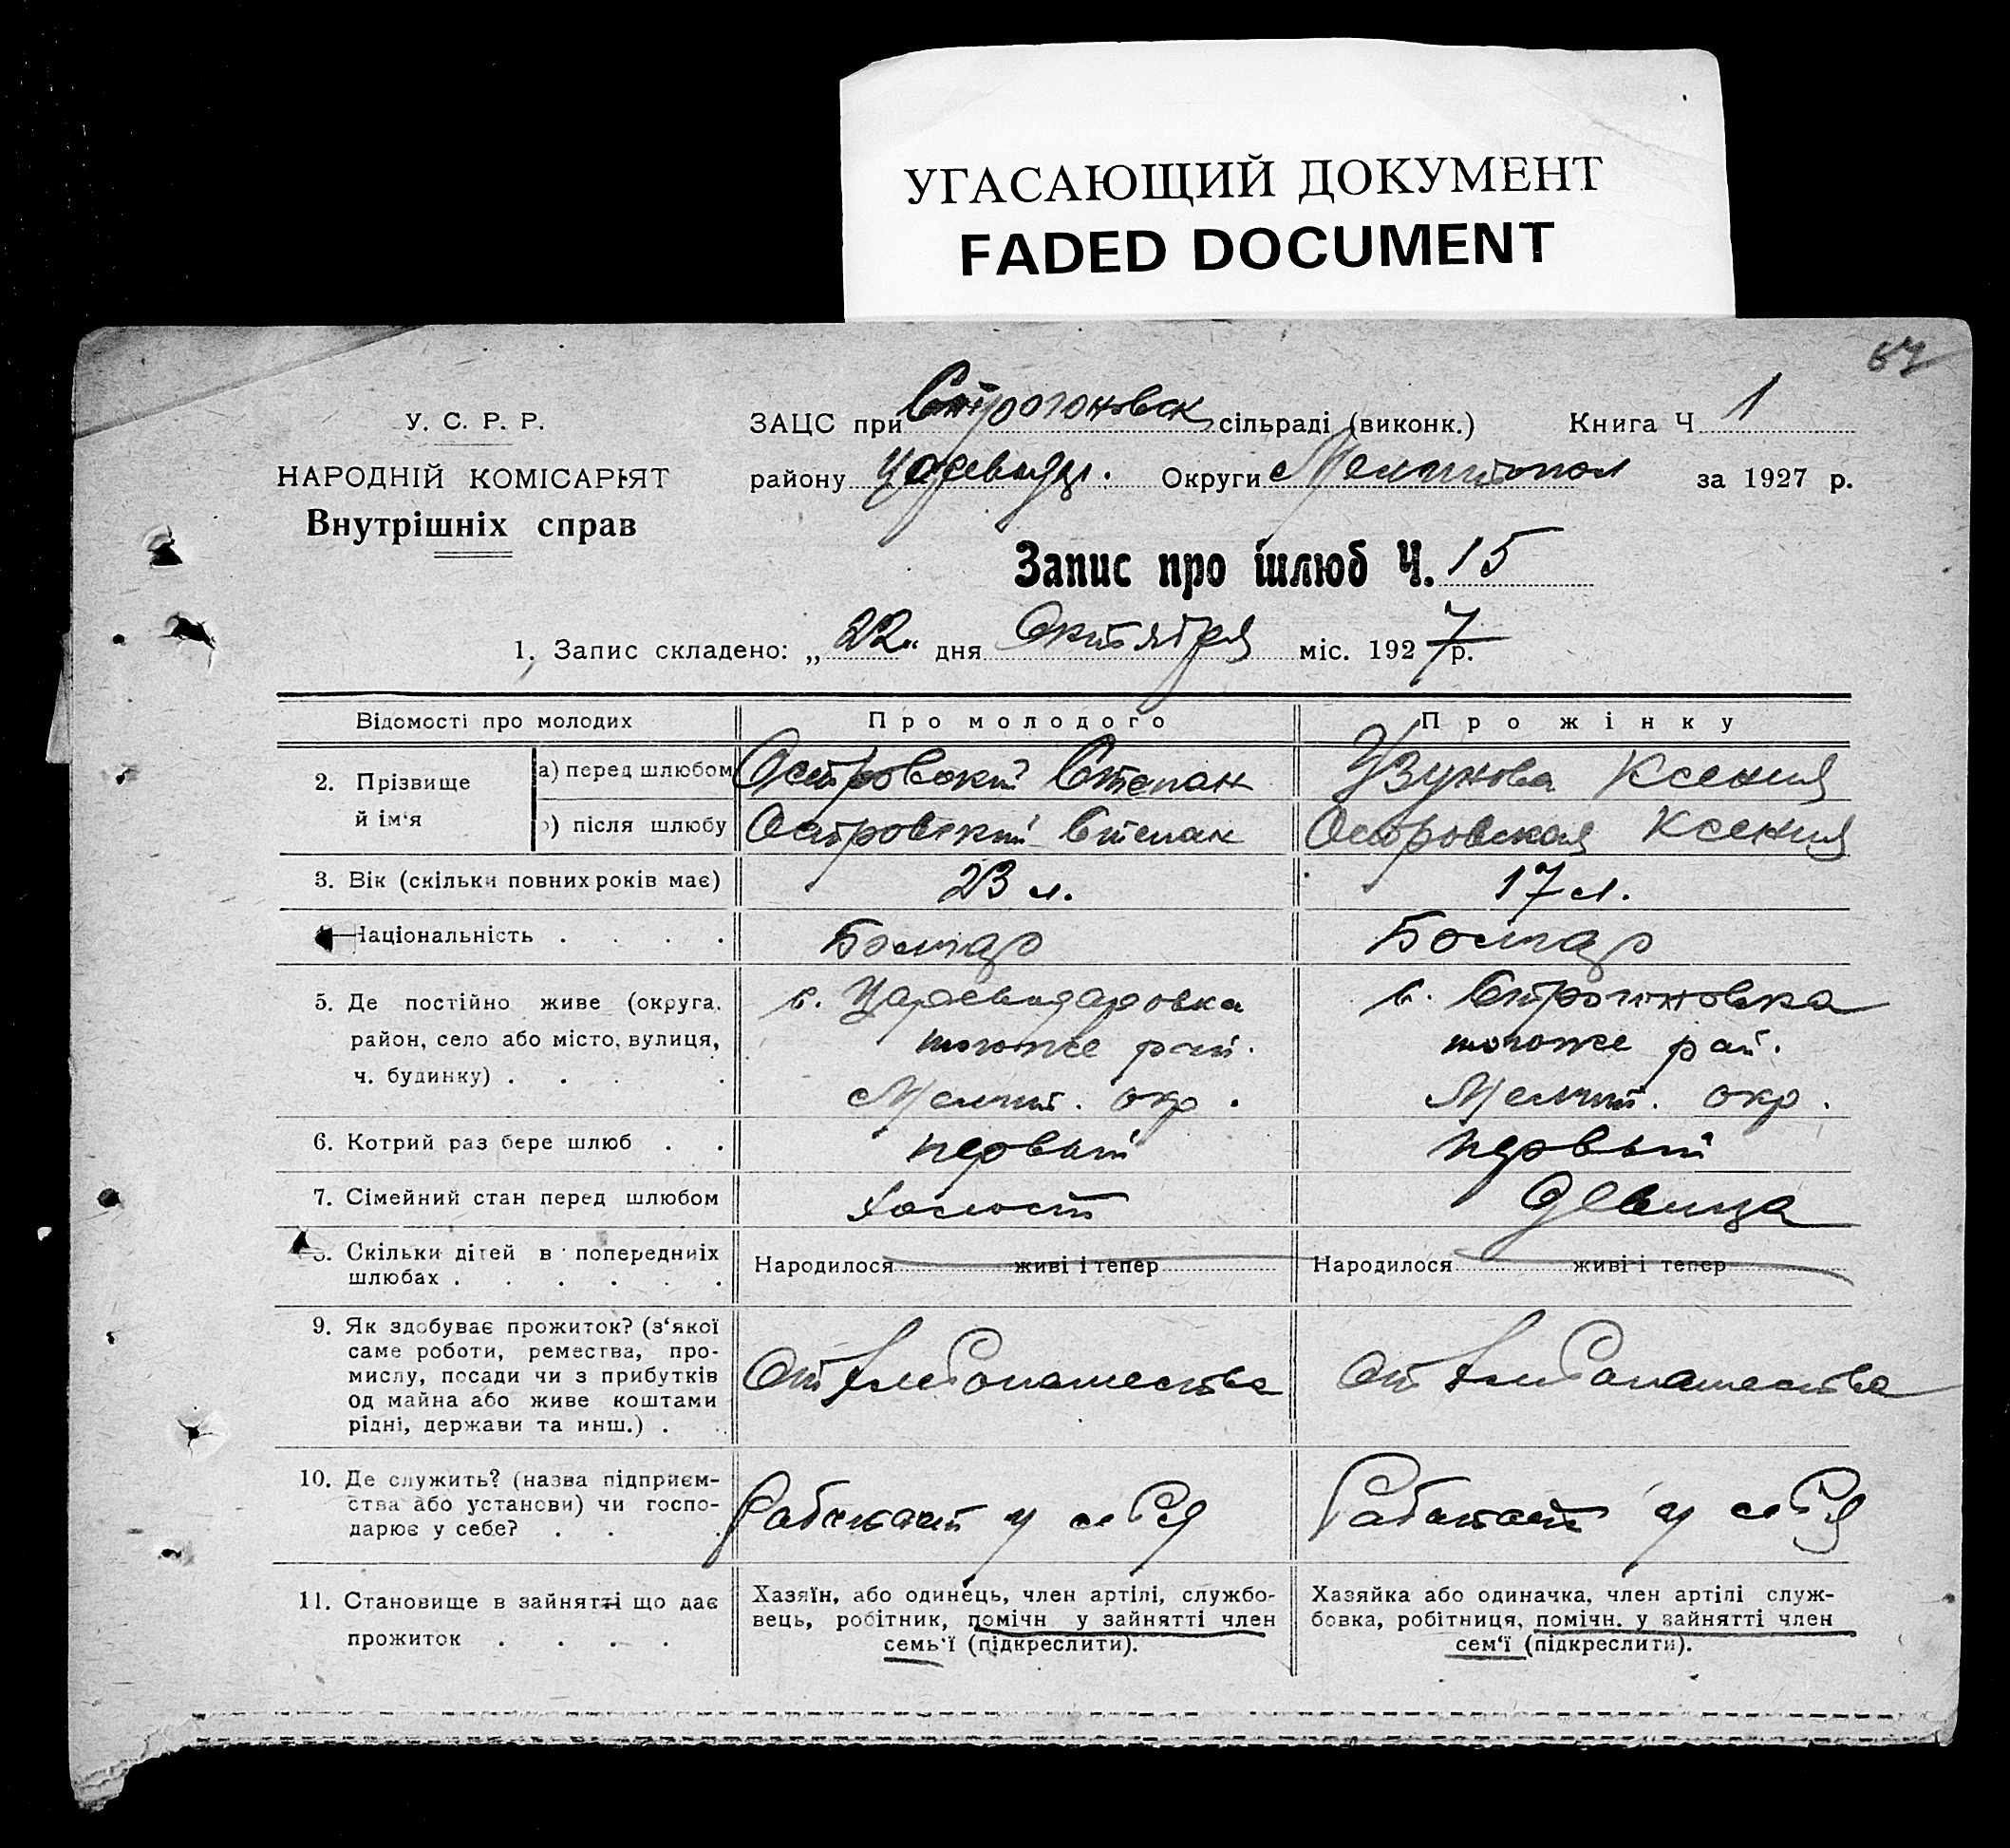 УГАСАЮЩИЙ ДОКУМЕНТ
FADED DOCUMENT
У. С. Р. Р.
НАРОДНІЙ КОМІСАРІЯТ
Внутрішніх справ
ЗАЦС при Строгоновск сільраді (виконк.) Книга Ч 1
району Царевида. Округи Мелитопол за 1927 р.
Запис про шлюб Ч. 15
1. Запис складено: „22“ дня Октября міс. 1927 р.
Відомості про молодих Про молодого Про жінку
2. Прізвище й ім‘я
а) перед шлюбом Островский Степан Узунова Ксения
б) після шлюбу Островский Степан Островская Ксения
3. Вік (скільки повних років має) 23 л. 17 л.
Національність . . . . Болгар Болгар
5. Де постійно живе (округа, район, село або місто, вулиця, ч. будинку) . . .
с. Царевидаровка
тогоже рай.
Мелит. окр.
с. Строгоновка
тогоже рай.
Мелит. окр.
6. Котрий раз бере шлюб . . первый первый
7. Сімейний стан перед шлюбом холост девица
8. Скільки дітей в попередніх
шлюбах . . . . . .
Народилося живі і тепер Народилося живі і тепер
9. Як здобуває прожиток? (з‘якої
саме роботи, ремества, про-
мислу, посади чи з прибутків
од майна або живе коштами
рідні, держави та инш.) .
От хлебопашества От хлебопашества
10. Де служить? (назва підприєм-
ства або установи) чи госпо-
дарює у себе? . .
Работает у себя Работает у себя
11. Становище в зайнятті що дає
прожиток . . . .
Хазяїн, або одинець, член артілі, службо-
вець, робітник, помічн у зайнятті член
семь‘ї (підкреслити).
Хазяйка або одиначка, член артілі служ-
бовка, робітниця, помічн. у зайнятті член
сем‘ї (підкреслити).